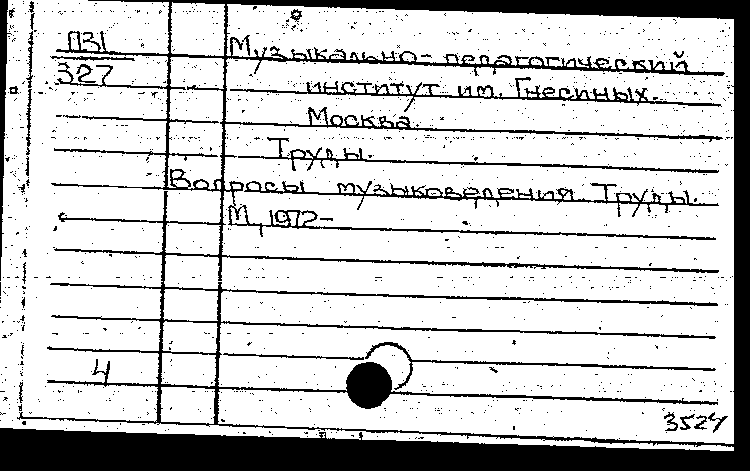 П31
327
Музыкально-педагогический
институт им. Гнесиных.
Москва.
Труды.
Вопросы музыковедения. Труды.
М, 1972-
4
3524